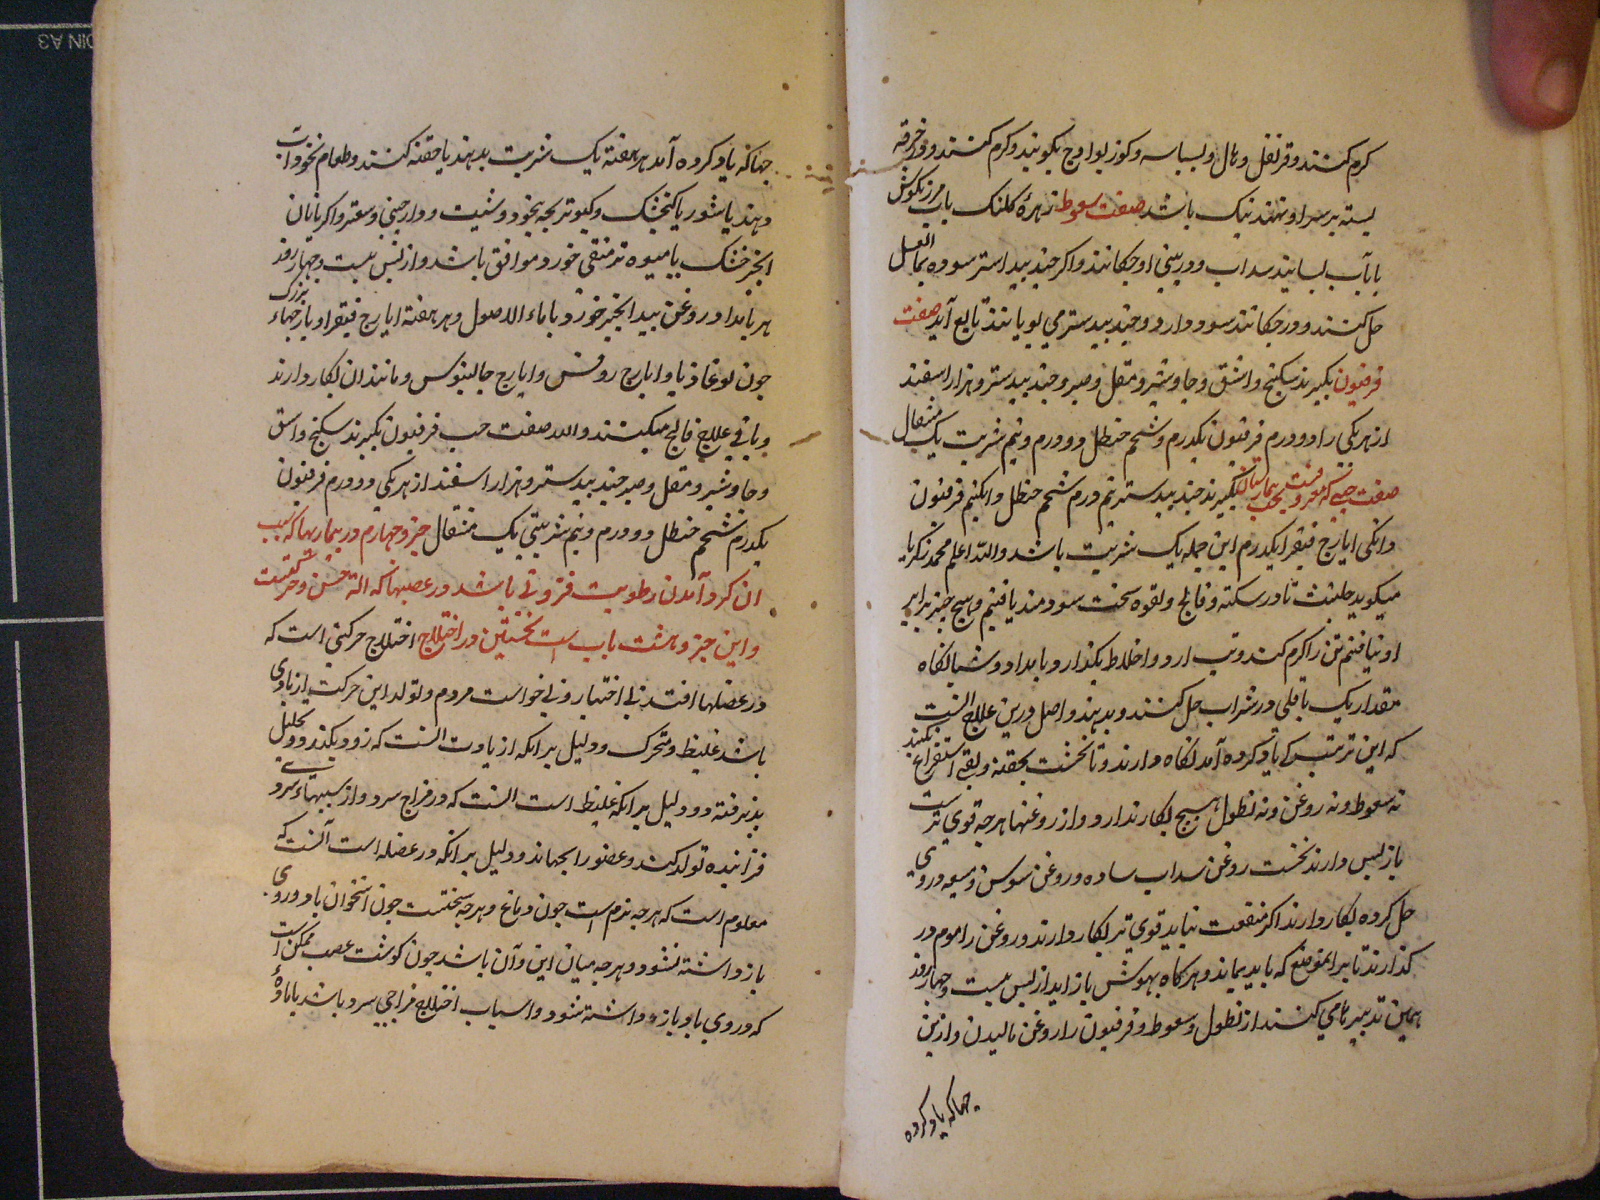 کرم کنند و قرنفل و هال و بسباسه و کوز بوا و وج بکوبند و کرم کنند و در خرقه
بسته بر سر او نهند نیک باشد صفت سعوط زهرهٔ کلنک باب مرزنکوش
یا بآب لسا بیند سداب و در بینی او چکانند و اکر جند بیدستر سوده بماء العسل
حل کنند و در چکانند سود دارد و جند بیدستر می بویانند نافع آید صفت
فرفیون بکیرند سکبنج و اشق و جاوشیر و مقل و صبر و جند بیدستر و هزار اسفند
از هر یکی را دو درم فرفیون یکدرم و شحم حنظل دو درم و نیم شربت یک مثقال
صفت حبی که معروفست بحب بیمارستان بکیرند جند بیدستر نیم درم شحم حنظل دانکنیم فرفیون
دانکی ایارج فیقرا یکدرم این جمله یک شربت باشد والله اعلم محمد زکریا
میکوید حلتیث تا در سکته و فالج و لقوه سخت سودمند یافتم و هیچ چیز برابر
او نیافتم تن را کرم کند و تب آرد و اخلاط بکدازد و بامداد و شبانکاه
مقدار یک باقلی در شراب حل کنند و بدهند و اصل درین علاج آنست
که این ترتیب که یاد کرده آمد نکاه دارند و تا نخست بحقنه و بقی استفراغ نکنند
نه سعوط و نه روغن و نه نطول هیچ بکار ندارد و از روغنها هرچه قوی ترست
باز پس دارند نخست روغن سداب ساده و روغن سوسن و میعه در وی
حل کرده بکار دارند اکر منفعت نیاید قوی تر بکار دارند و روغن را موم در
کذارند تا بر آنموضع که باید بماند و هرکاه بهوش باز آید از پس بیست و چهار روز
همین تدبیرها می کنند از نطول و سعوط و فرفیون را روغن مالیدن و ازین
جهاکه یاد کرده
جهاکه یاد کرده آمد هر هفته یک شربت بدهند یا حقنه کنند و طعام نخوداب
دهند یا شوربا کنجشک و کبوتر بچه بنخود و شبت و دارچینی و سعتر و اکر با نان
انجیر خشک یا میوه تر منقی خورد موافق باشد و از پس بیست و چهار روز
هر بامداد روغن بید انجیر خورد با ماء الاصول و هر هفته ایارج فیقرا و یارجهاء بزرک
چون لوغاذیا و ایارج روفس و ایارج جالینوس و مانند آن بکار دارند
و باقی علاج فالج میکنند والله صفت حب فرفیون بکیرند سکبنج و اشق
و جاوشیر و مقل و صبر جند بیدستر و هزار اسفند از هر یکی دو درم فرفیون
یکدرم شحم حنظل دو درم و نیم شربتی یک مثقال جزو چهارم در بیماریها که بسبب
آن کرد آمدن رطوبت فزونی باشد در عصبها که آلت حس و حرکتست
و این جزو هشت باب است نخستین در اختلاج اختلاج حرکتی است که
در عضلها افتد بی اختیار و بی خواست مردم و تولد این حرکت از بادی
باشد غلیظ و متحرک و دلیل بر انکه از بادت آنست که زود بکذرد و تحلیل
پذیرفته و دلیل بر انکه غلیظ است آنست که در مزاج سرد و از سببهاء سردی
فزاینده تولد کند و عضو را بجهاند و دلیل بر انکه در عضله است آنست که
معلوم است که هرچه نرم است چون دماغ و هرچه سختست چون استخوان باد در وی
باز داشته نشود و هرچه میان این و آن باشد چون کوشت عصب ممکن است
که در وی باد باز داشته شود و اسباب اختلاج مزاجی سرد باشد با مادهٔ